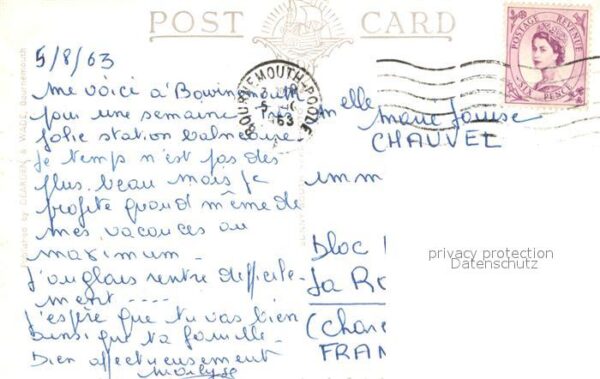 POST CARD
5/8/63
me voici à Bournemouth
pour une semaine
jolie station balneaire
le temps n'est pas des
plus beau mais je
profite quand même de
mes vacances au
maximum -
L'anglais rentre difficile-
ment ----
J'espère que tu vas bien
ainsi que ta famille -
Bien affectueusement
BOURNEMOUTH-POOLE
1963
POSTAGE REVENUE
SIX PENCE
elle Marie Louise
CHAUVEL
imm
Bloc
La Ro
(Chare
FRAN
privacy protection
Datenschutz
DEARDEN & WADE, Bournemouth